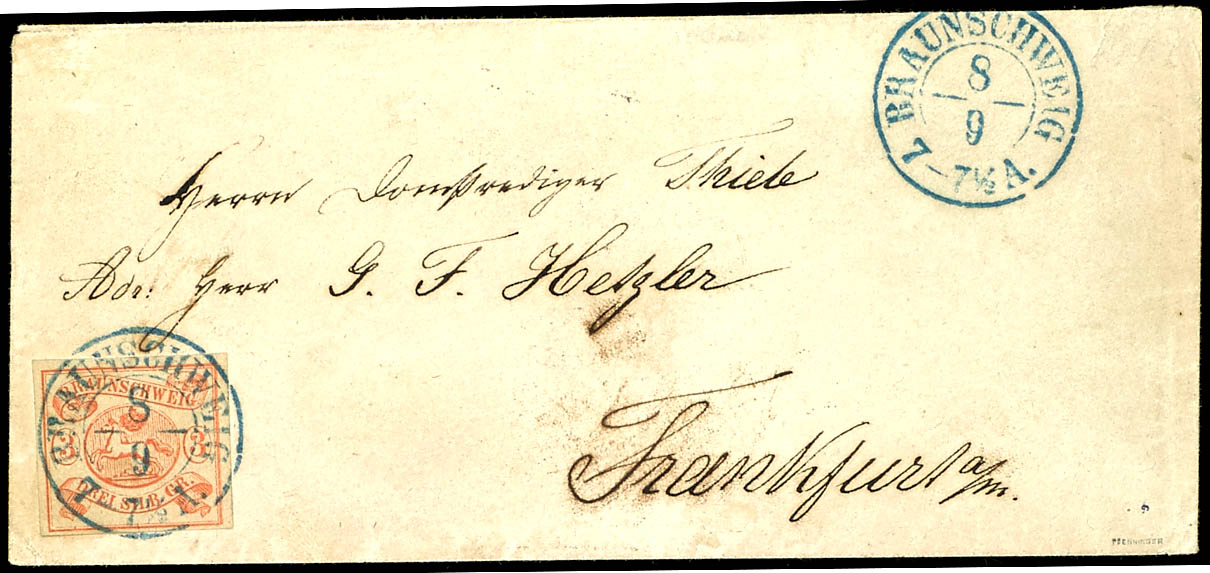 BRAUNSCHWEIG
8
9
7 – 7½ A.
Herrn Domprediger Thiele
Adr: Herr G. F. Hetzler
Frankfurt a/m.
BRAUNSCHWEIG
8
9
7 – 7½ A.
BRAUNSCHWEIG
3 3
DREI SILB. GR.
PFENNINGER